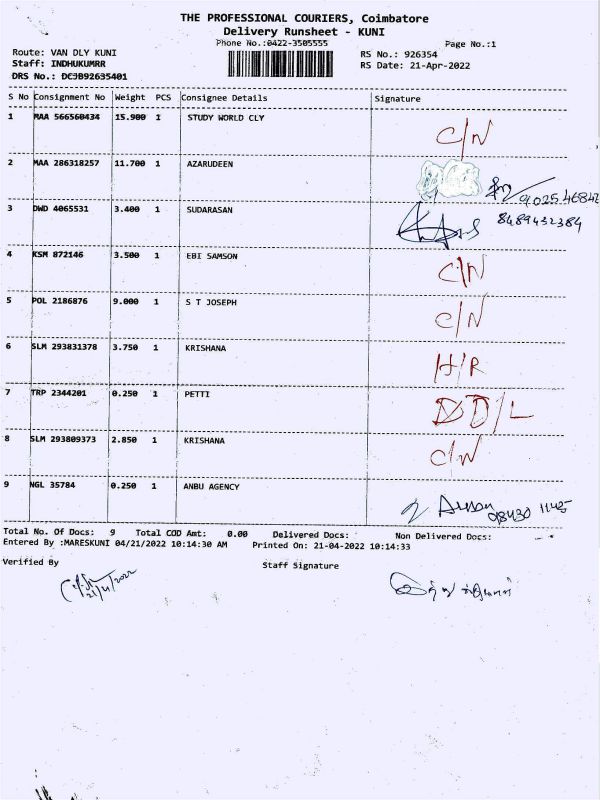 THE PROFESSIONAL COURIERS, Coimbatore
Delivery Runsheet - KUNI
Phone No.:0422-3505555
Page No.:1
Route: VAN DLY KUNI
RS No.: 926354
Staff: INDHUKUMRR
RS Date: 21-Apr-2022
DRS No.: DCJB92635401
S No Consignment No Weight PCS Consignee Details Signature
1 MAA 566560434 15.900 1 STUDY WORLD CLY
C/N
2 MAA 286318257 11.700 1 AZARUDEEN
3 DWD 4065531 3.400 1 SUDARASAN
8489432384
4 KSM 872146 3.500 1 EBI SAMSON
C/N
5 POL 2186876 9.000 1 S T JOSEPH
C/N
6 SLM 293831378 3.750 1 KRISHANA
H/R
7 TRP 2344201 0.250 1 PETTI
DD/L
8 SLM 293809373 2.850 1 KRISHANA
C/N
9 NGL 35784 0.250 1 ANBU AGENCY
98430 1145
Total No. Of Docs: 9 Total COD Amt: 0.00 Delivered Docs: Non Delivered Docs:
Entered By :MARESKUNI 04/21/2022 10:14:30 AM Printed On: 21-04-2022 10:14:33
Verified By
Staff Signature
21/4/2022